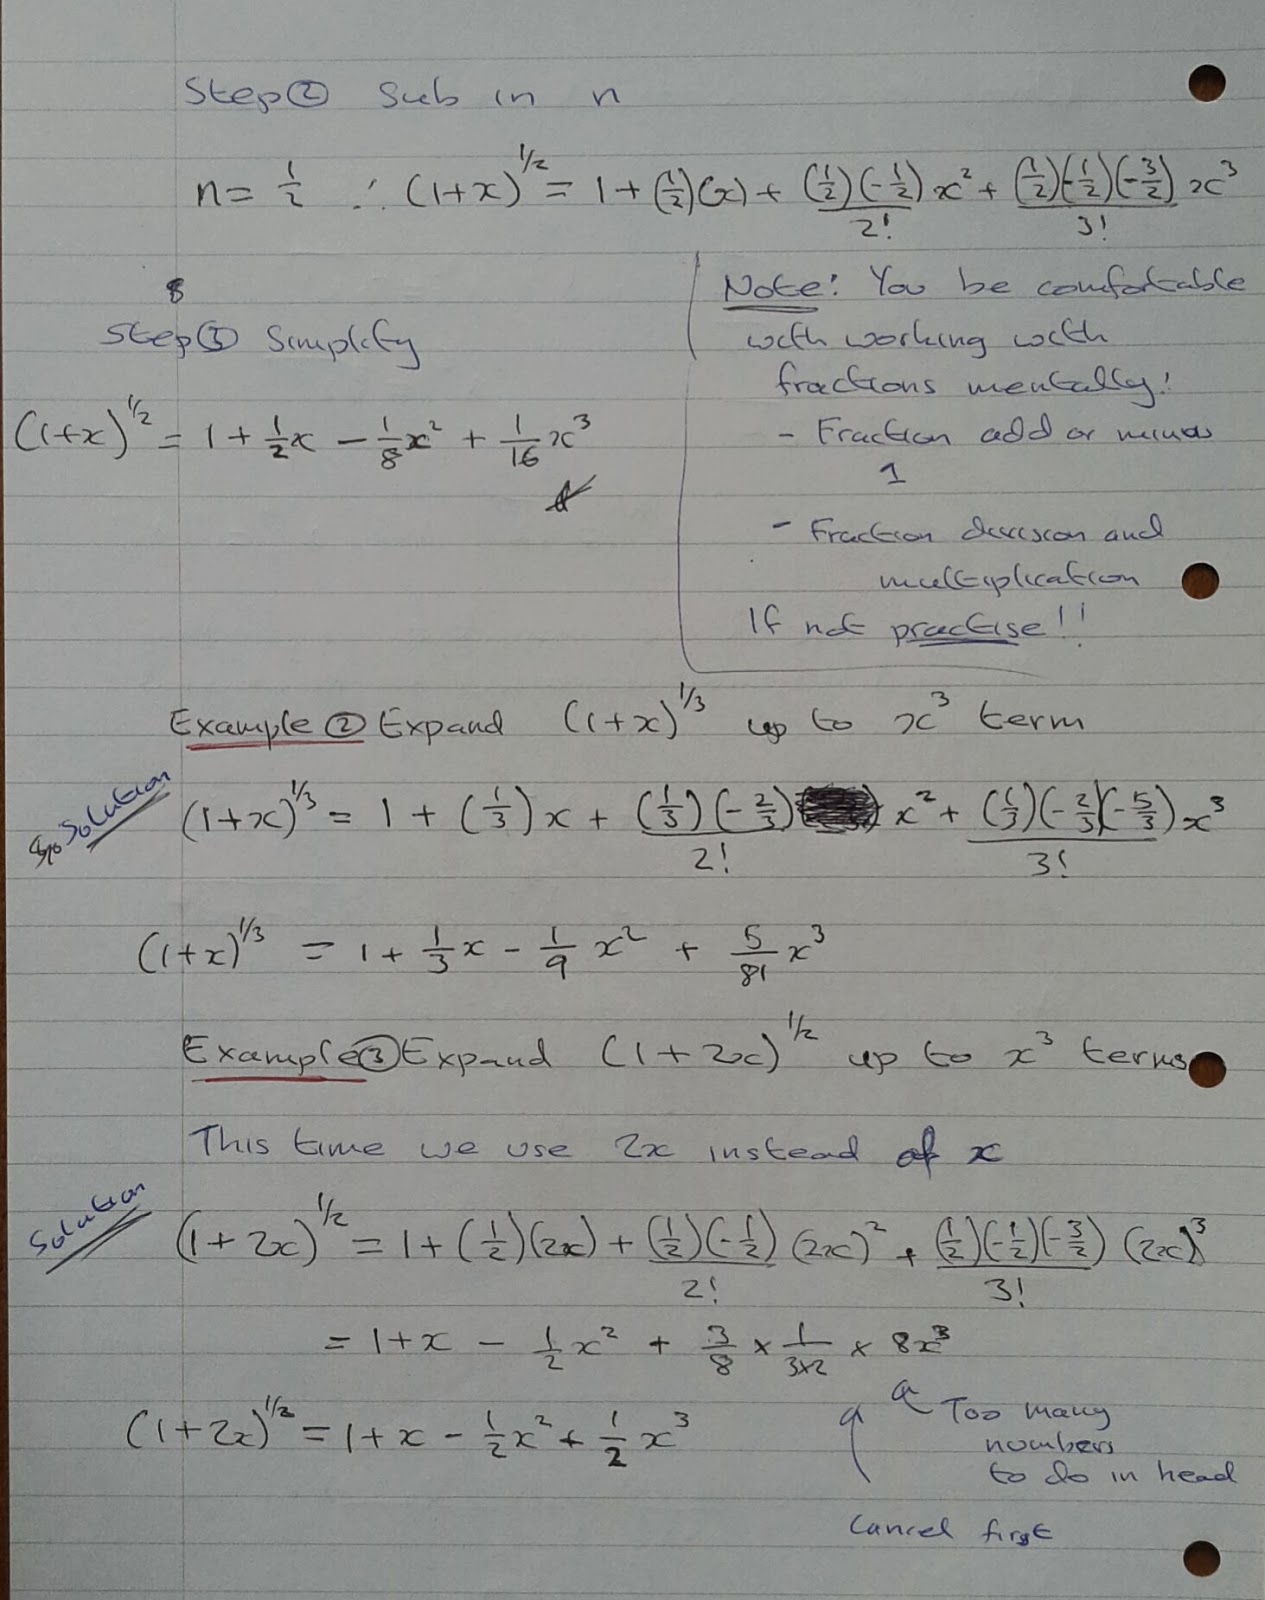 Step ② Sub in n
n = 1/2 ∴ (1+x)^1/2 = 1 + (1/2)(x) + (1/2)(-1/2)/2! x² + (1/2)(-1/2)(-3/2)/3! x³
Step ③ Simplify
(1+x)^1/2 = 1 + 1/2x - 1/8x² + 1/16x³
Note: You be comfortable
with working with
fractions mentally!
- Fraction add or minus
1
- Fraction division and
multiplication
If not practise!!
Example ② Expand (1+x)^1/3 up to x³ term
Solution
(1+x)^1/3 = 1 + (1/3)x + (1/3)(-2/3)/2! x² + (1/3)(-2/3)(-5/3)/3! x³
(1+x)^1/3 = 1 + 1/3x - 1/9x² + 5/81x³
Example ③ Expand (1+2x)^1/2 up to x³ terms
This time we use 2x instead of x
Solution
(1+2x)^1/2 = 1 + (1/2)(2x) + (1/2)(-1/2)/2! (2x)² + (1/2)(-1/2)(-3/2)/3! (2x)³
= 1 + x - 1/2x² + 3/8 × 1/3×2 × 8x³
(1+2x)^1/2 = 1 + x - 1/2x² + 1/2x³
Too many
numbers
to do in head
Cancel first